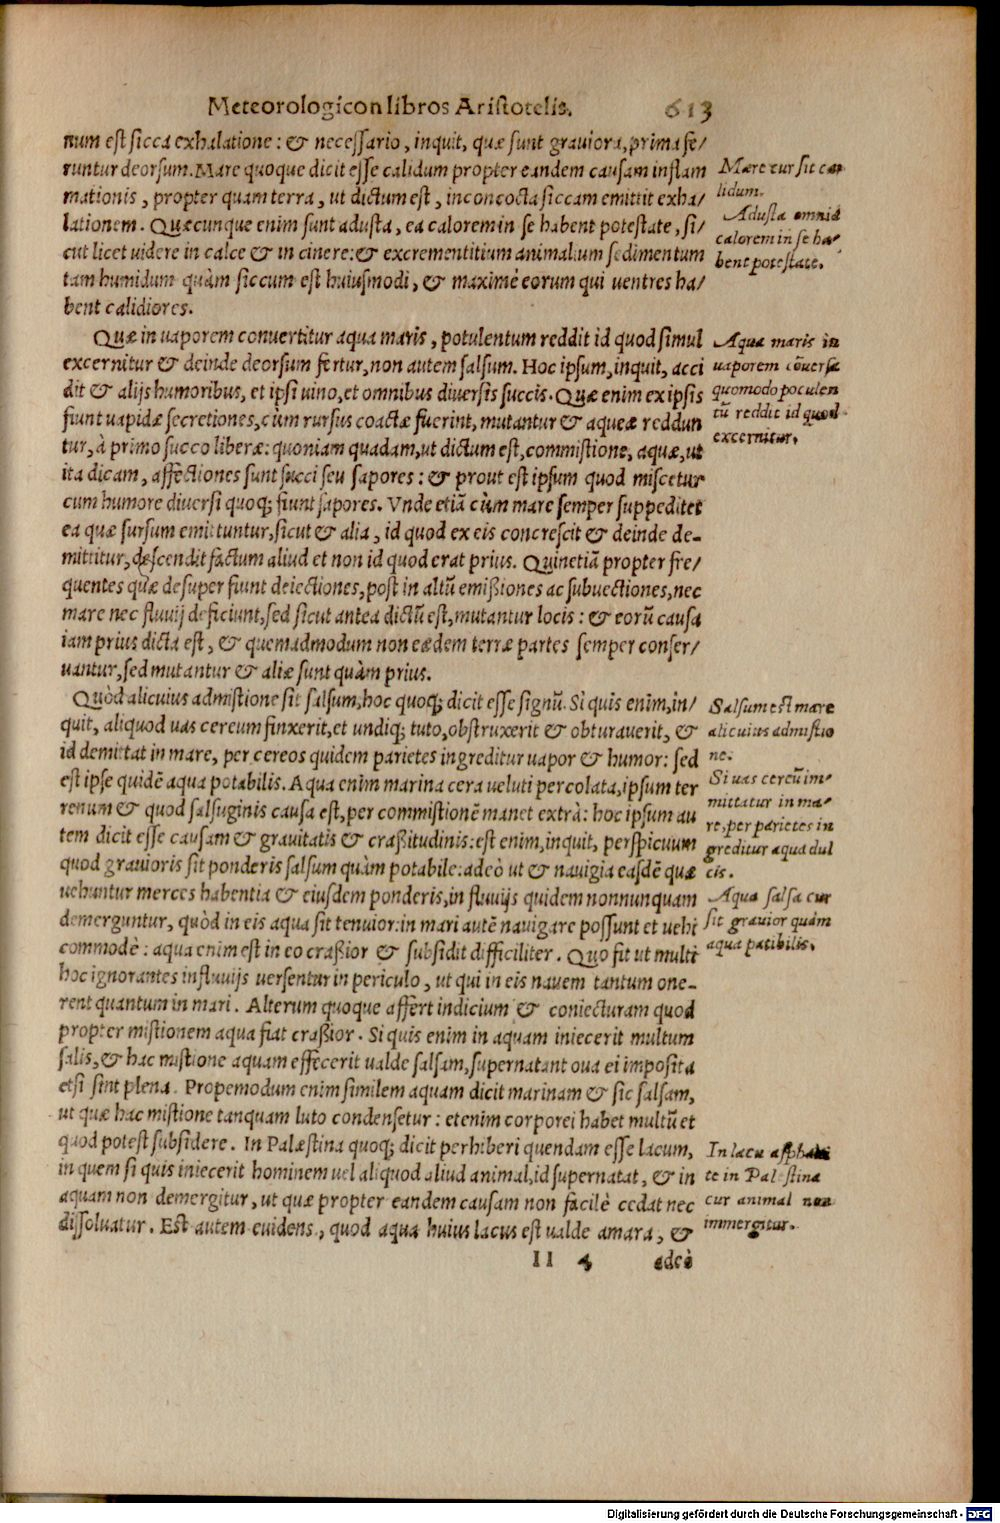 Meteorologicon libros Aristotelis. 613
num est sicca exhalatione: & necessario, inquit, quæ sunt graviora, prima fe/
runtur deorsum. Mare quoque dicit esse calidum propter eandem causam inflam
mationis, propter quam terra, ut dictum est, inconcocta siccam emittit exha/
lationem. Quæcunque enim sunt adusta, ea calorem in se habent potestate, si/
cut licet videre in calce & in cinere: & excrementitium animalium sedimentum
tam humidum quàm siccum est huiusmodi, & maximè eorum qui ventres ha/
bent calidiores.
Mare cur sit ca-
lidum.
Adusta omnia
calorem in se ha-
bent potestate.
Quæ in uaporem convertitur aqua maris, potulentum reddit id quod simul
excernitur & deinde deorsum fertur, non autem salsum. Hoc ipsum, inquit, acci
dit & alijs humoribus, et ipsi uino, et omnibus diversis succis. Quæ enim ex ipsis
fiunt uapidæ secretiones, cùm rursus coactæ fuerint, mutantur & aqueæ reddun
tur, à primo succo liberæ: quoniam quadam, ut dictum est, commistione, aquæ, ut
ita dicam, affectiones sunt succi seu sapores: & prout est ipsum quod miscetur
cum humore diversi quoq; fiunt sapores. Vnde etiã cùm mare semper suppeditet
ea quæ sursum emittuntur, sicut & alia, id quod ex eis concrescit & deinde de-
mittitur, descendit factum aliud et non id quod erat prius. Quinetiã propter fre/
quentes quæ desuper fiunt deiectiones, post in altũ emißiones ac subuectiones, nec
mare nec fluuij deficiunt, sed sicut antea dictũ est, mutantur locis: & eorũ causa
iam prius dicta est, & quemadmodum non eædem terræ partes semper conser/
uantur, sed mutantur & aliæ sunt quàm prius.
Aqua maris in
uaporem cõuersa
quomodo poculen
tũ reddit id quod
excernitur.
Quòd alicuius admistione sit salsum, hoc quoq; dicit esse signũ. Si quis enim, in/
quit, aliquod uas cereum finxerit, et undiq; tuto, obstruxerit & obturauerit, &
id demittat in mare, per cereos quidem parietes ingreditur uapor & humor: sed
est ipse quidẽ aqua potabilis. Aqua enim marina cera ueluti percolata, ipsum ter
renum & quod salsuginis causa est, per commistionẽ manet extrà: hoc ipsum au
tem dicit esse causam & gravitatis & craßitudinis: est enim, inquit, perspicuum
quod gravioris sit ponderis salsum quàm potabile: adeò ut & nauigia easdẽ quæ
uehuntur merces habentia & eiusdem ponderis, in fluuijs quidem nonnunquam
demerguntur, quòd in eis aqua sit tenuior: in mari autẽ nauigare possunt et uehi
commodè: aqua enim est in eo craßior & subsidit difficiliter. Quo fit ut multi
hoc ignorantes in fluuijs uersentur in periculo, ut qui in eis nauem tantum one-
rent quantum in mari. Alterum quoque affert indicium & coniecturam quod
propter mistionem aqua fiat craßior. Si quis enim in aquam iniecerit multum
salis, & hac mistione aquam effecerit ualde salsam, supernatant oua ei imposita
etsi sint plena. Propemodum enim similem aquam dicit marinam & sic salsam,
ut quæ hac mistione tanquam luto condensetur: etenim corporei habet multũ et
quod potest subsidere. In Palæstina quoq; dicit perhiberi quendam esse lacum,
in quem si quis iniecerit hominem uel aliquod aliud animal, id supernatat, & in
aquam non demergitur, ut quæ propter eandem causam non facilè cedat nec
dissoluatur. Est autem euidens, quod aqua huius lacus est ualde amara, &
Salsum est mare
alicuius admistio
ne.
Si uas cereũ im-
mittatur in ma-
re, per parietes in
greditur aqua dul
cis.
Aqua salsa cur
sit gravior quàm
aqua patibilis.
In lacu asphalti
te in Palestina
cur animal non
immergitur.
II 4 adeò
Digitalisierung gefördert durch die Deutsche Forschungsgemeinschaft - DFG